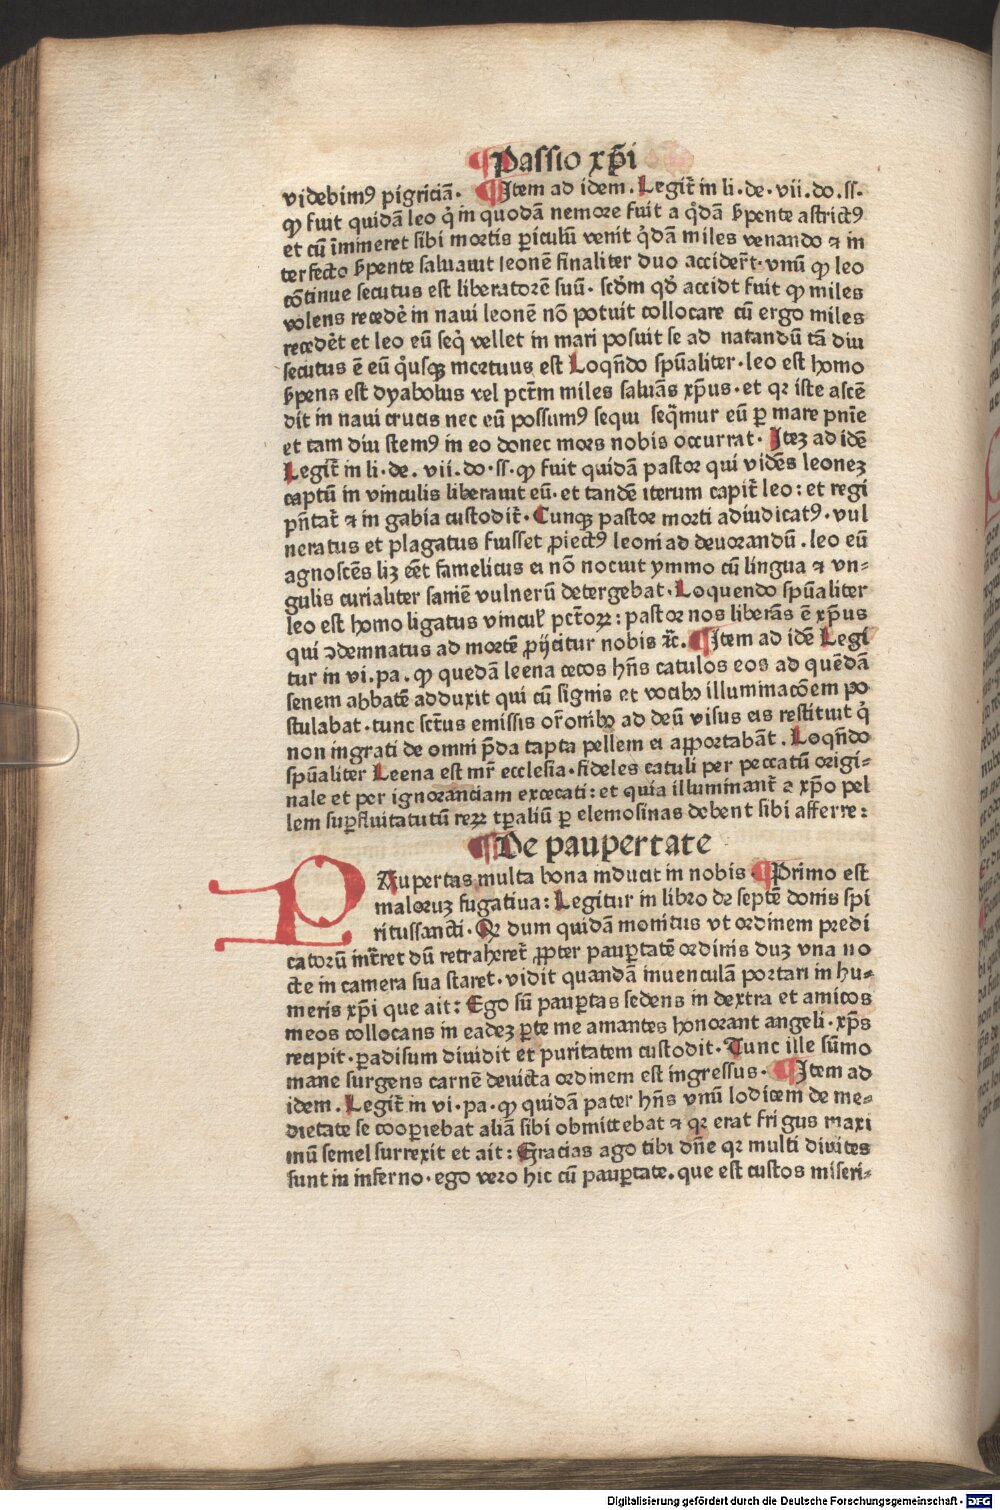 ¶ Passio xp̄i
videbimꝰ pigriciā. ¶ Item ad idem. Legit̃ in li. de. vii. do. ss.
ꝙ fuit quidā leo q̇ in quodā nemore fuit a q̇dā ẜpente astrictꝰ
et cū īmineret sibi mortis ꝑiculū venit q̇dā miles venando ⁊ in
terfecto ẜpente saluauit leonē finaliter duo accider̃t. vnū ꝙ leo
cōtinue secutus est liberatorē suū. scd̄m qd̓ accidt fuit ꝙ miles
volens recedẻ in naui leonē nō potuit collocare cū ergo miles
recedẻt et leo eū seq̇ vellet in mari posuit se ad natandū tā diu
secutus ē eū q̇usqꝫ mortuus est Loqn̄do spūaliter. leo est homo
ẜpens est dyabolus vel pctm̄ miles saluās xp̄us. et qr iste ascē
dit in naui crucis nec eū possumꝰ sequi seq̄mur eū ꝑ mare pn̄ie
et tam diu stemꝰ in eo donec mors nobis occurrat. Itez ad idē
Legit̃ in li. de. vii. do. ss. ꝙ fuit quidā pastor qui vidēs leonez
captū in vinculis liberauit eū. et tandē iterum capit̃ leo: et regi
pn̄tat̃ ⁊ in gabia custodit̃. Cunqꝫ pastor morti adiudicatꝰ. vul
neratus et plagatus fuisset ꝓiectꝰ leoni ad deuorandū. leo eū
agnoscēs lꝫ eēt famelicus ei nō nocuit ymmo cū lingua ⁊ vn⸗
gulis curialiter saniē vulnerū detergebat. Loquendo spūaliter
leo est homo ligatus vincul̓ pctōꝝ: pastor nos liberās ē xp̄us
qui ꝯdemnatus ad mortē ꝓijcitur nobis ⁊c̃. ¶ Item ad idē Legi
tur in vi. pa. ꝙ quedā leena cecos hn̄s catulos eos ad quēdā
senem abbatē adduxit qui cū signis et vocibꝰ illuminacōem po
stulabat. tunc sctūs emissis or̄onibꝰ ad deū visus eis restituit q̇
non ingrati de omni p̄da capta pellem ei apportabāt. Loqn̄do
spūaliter Leena est mr̄ ecclesia. fideles catuli per peccatū origi⸗
nale et per ignoranciam excecati: et quia illuminant̃ a xp̄o pel
lem suꝑfluitatutū reꝝ tꝑaliū ꝑ elemosinas debent sibi afferre:
¶ De paupertate
PAupertas multa bona inducit in nobis. ¶ Primo est
maloruꝫ fugatiua: Legitur in libro de septē donis spi
ritussancti. Qr dum quidā monitus vt ordinem predi
catorū int̃ret dū retraheret̃ ꝓpter pauꝑtatē ordinis duꝫ vna no
cte in camera sua staret. vidit quandā iuuenculā portari in hu⸗
meris xp̄i que ait: Ego sū pauꝑtas sedens in dextra et amicos
meos collocans in eadeꝫ ꝑte me amantes honorant angeli. xp̄s
recipit. ꝑadisum diuidit et puritatem custodit. Tunc ille sūmo
mane surgens carnē deuicta ordinem est ingressus. ¶ Item ad
idem. Legit̃ in vi. pa. ꝙ quidā pater hn̄s vnū lodicem de me⸗
dietate se cooꝑiebat aliā sibi obmittebat ⁊ qr erat frigus maxi
mū semel surrexit et ait: Gracias ago tibi dn̄e qr multi diuites
sunt in inferno. ego vero hic cū pauꝑtate. que est custos miseri⸗
Digitalisierung gefördert durch die Deutsche Forschungsgemeinschaft - DFG